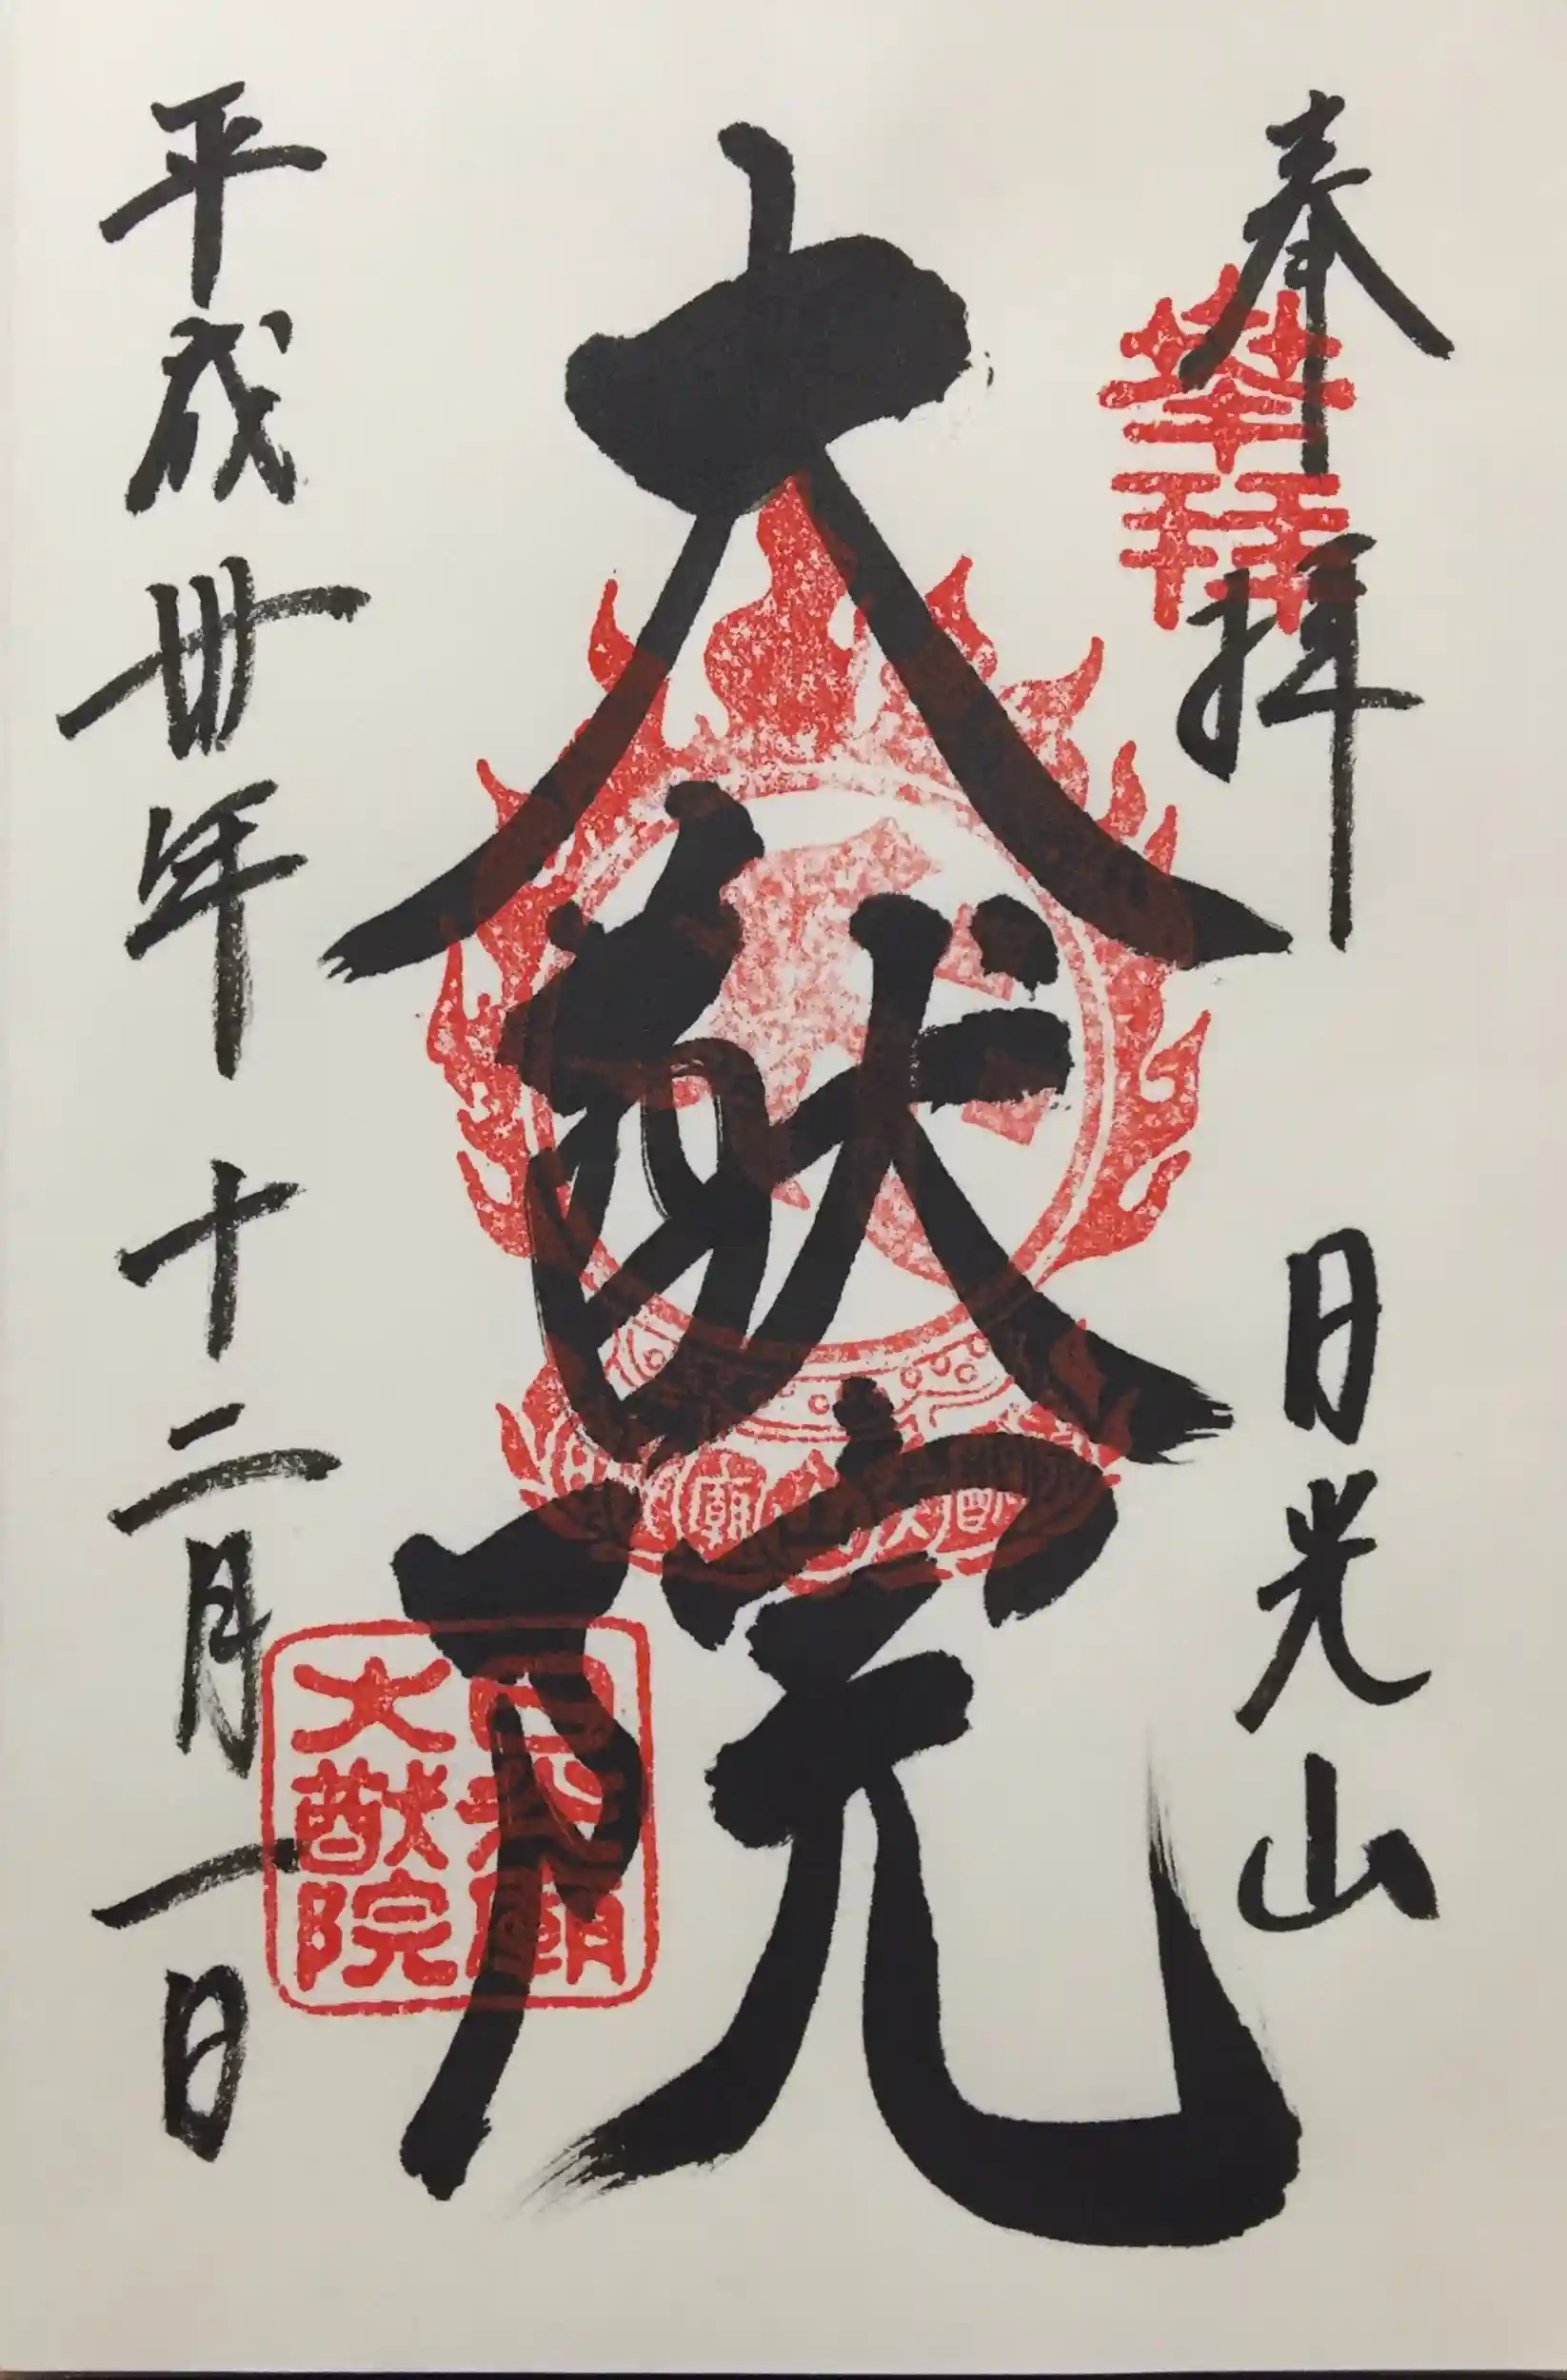 奉拝
日光山
大猷院
平成卅年十二月一日
奉拝
大猷院